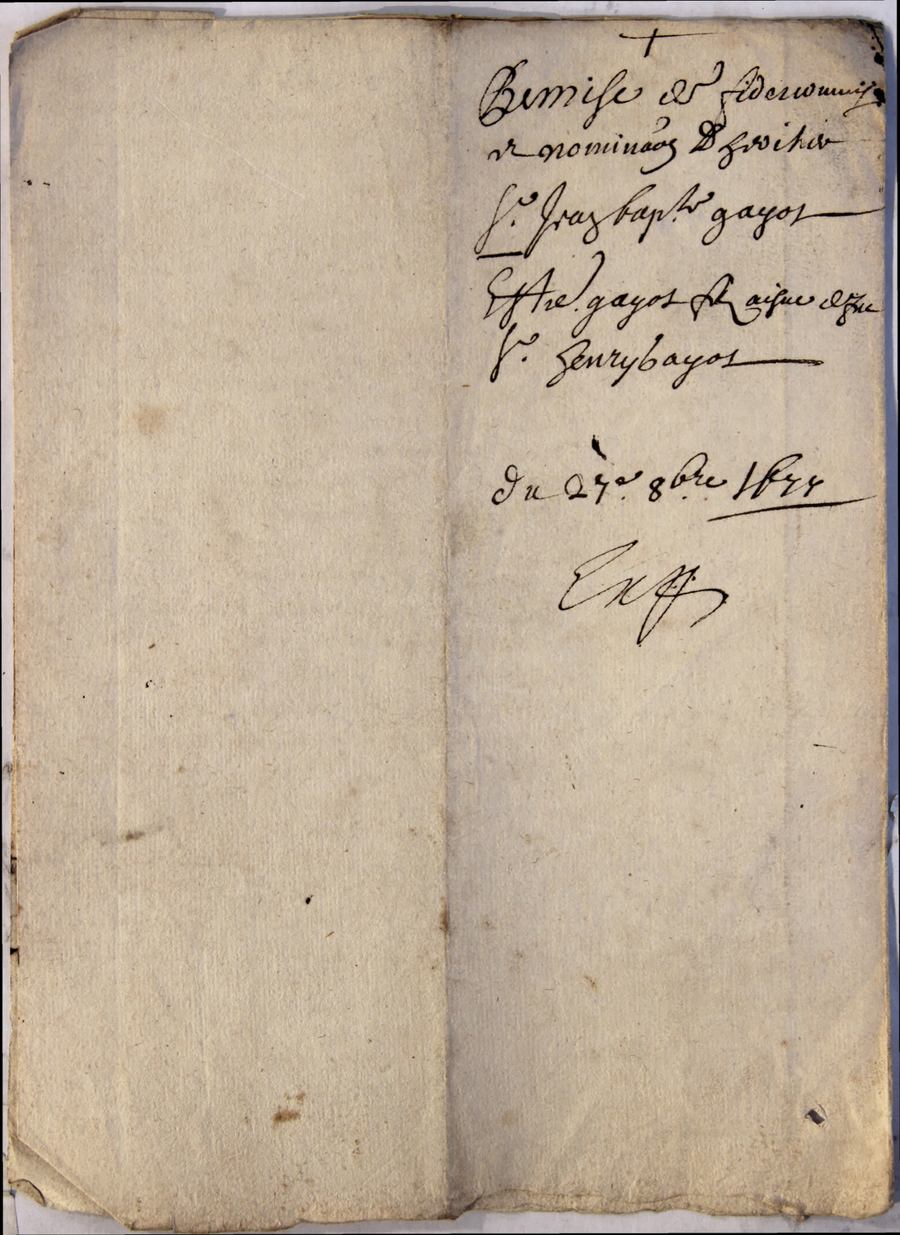 Remise de fideicommis
et nomināon D heritier
Sr. Jean bapte gayot
Estne. gayot fil aisne de feu
Sr. henry gayot
du 27e. 8bre 1677